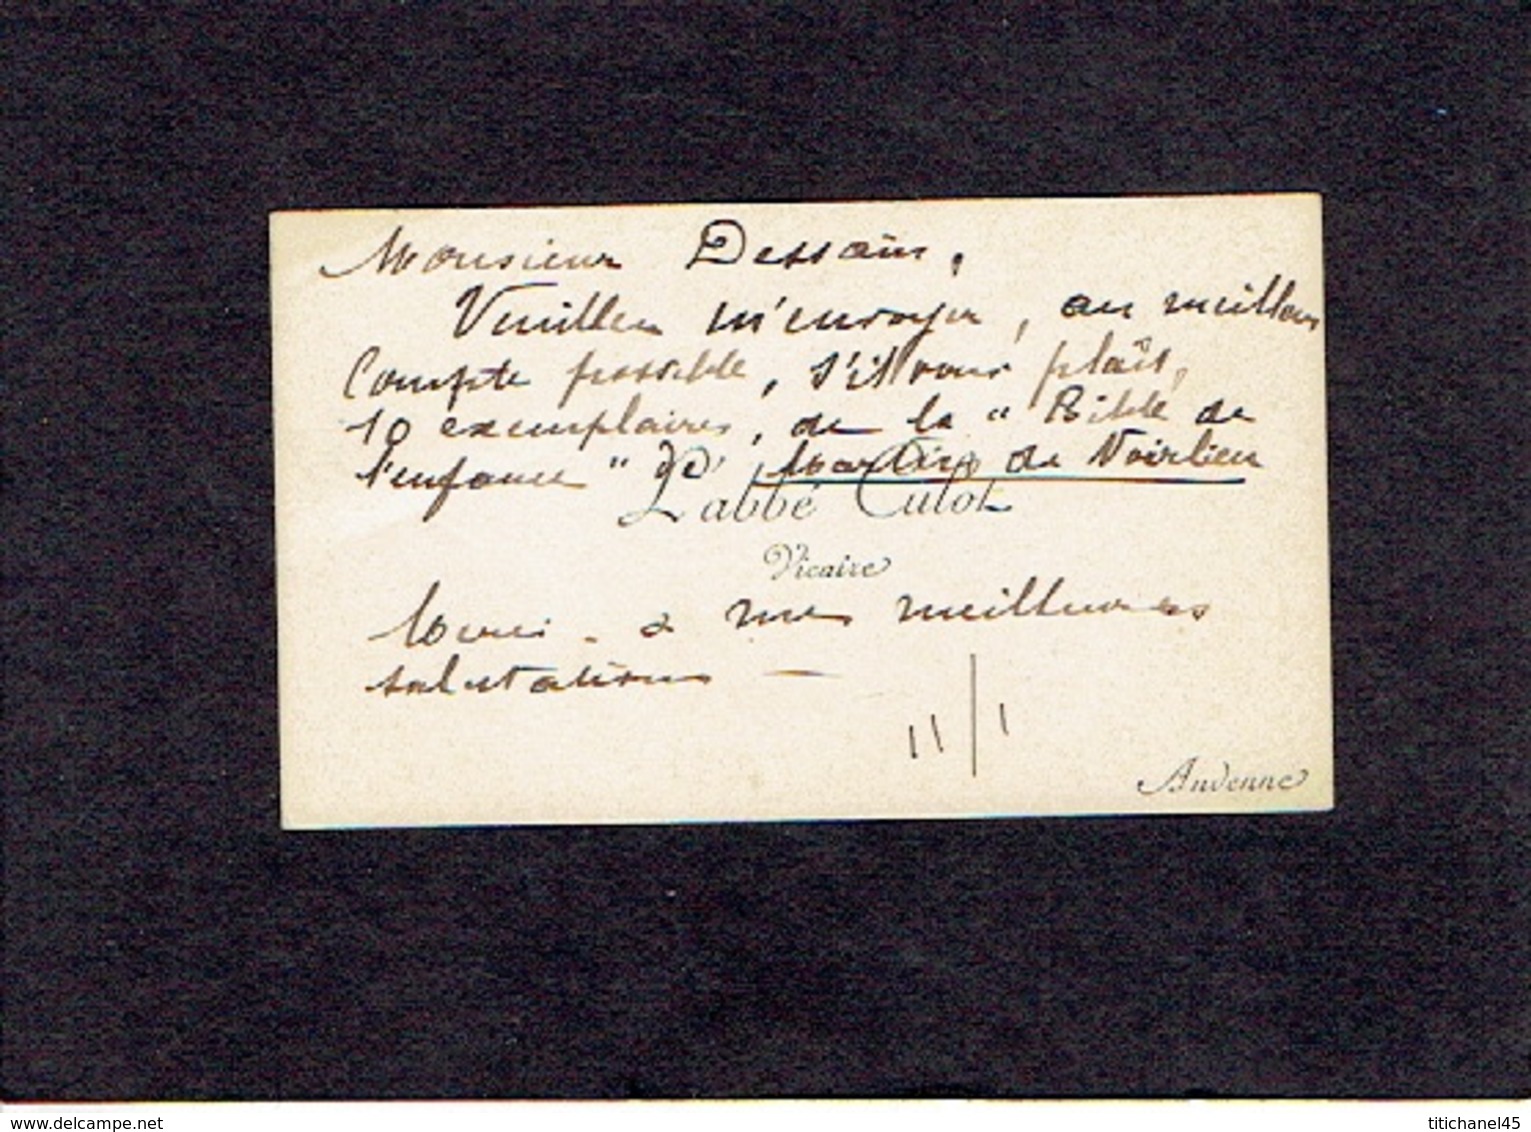 Monsieur Dessain,
Veuillez m'envoyer, au meilleur
Compte possible, s'il vous plaît,
10 exemplaires, de la "Bible de
l'enfance" de Martin de Noirlieu
L'abbé Culot
Vicaire
Merci - & mes meilleures
salutations -
11/1
Andenne
delcampe.net
titichanel45